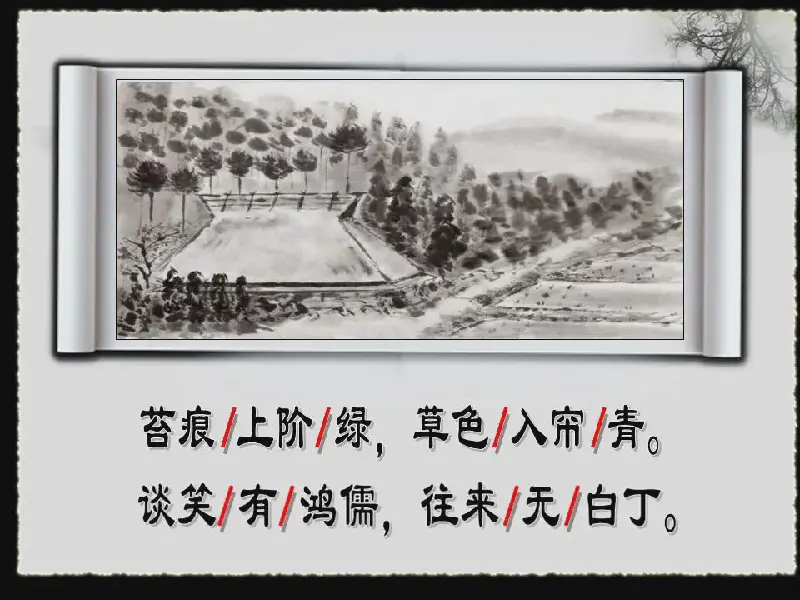 苔痕/上阶/绿，草色/入帘/青。
谈笑/有/鸿儒，往来/无/白丁。